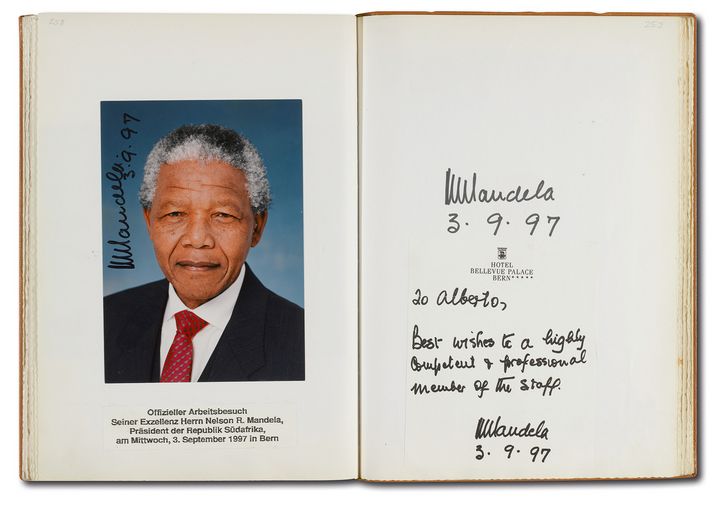 258
MMandela
3.9.97
Offizieller Arbeitsbesuch
Seiner Exzellenz Herrn Nelson R. Mandela,
Präsident der Republik Südafrika,
am Mittwoch, 3. September 1997 in Bern
MMandela
3.9.97
HOTEL
BELLEVUE PALACE
BERN★★★★★
To Alberto,
Best wishes to a highly
competent & professional
member of the staff.
MMandela
3.9.97